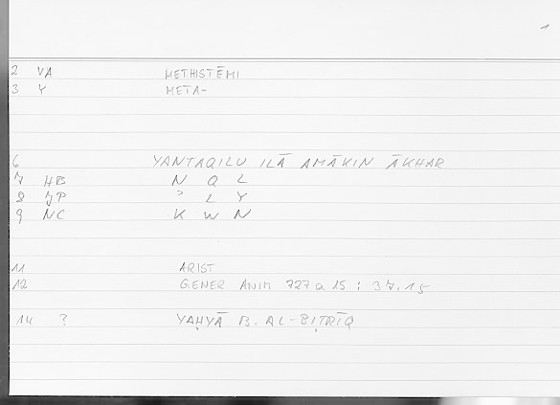 2 VA METHISTĒMI
3 Y META-
6 YANTAQILU ILĀ AMĀKIN ĀKHAR
7 HB N Q L
8 JP ʾ L Y
9 NC K W N
11 ARIST
12 GENER ANIM 727 a 15 : 37.15
14 ? YAḤYĀ B. AL-BIṬRĪQ